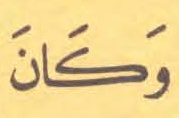 وَكَانَ